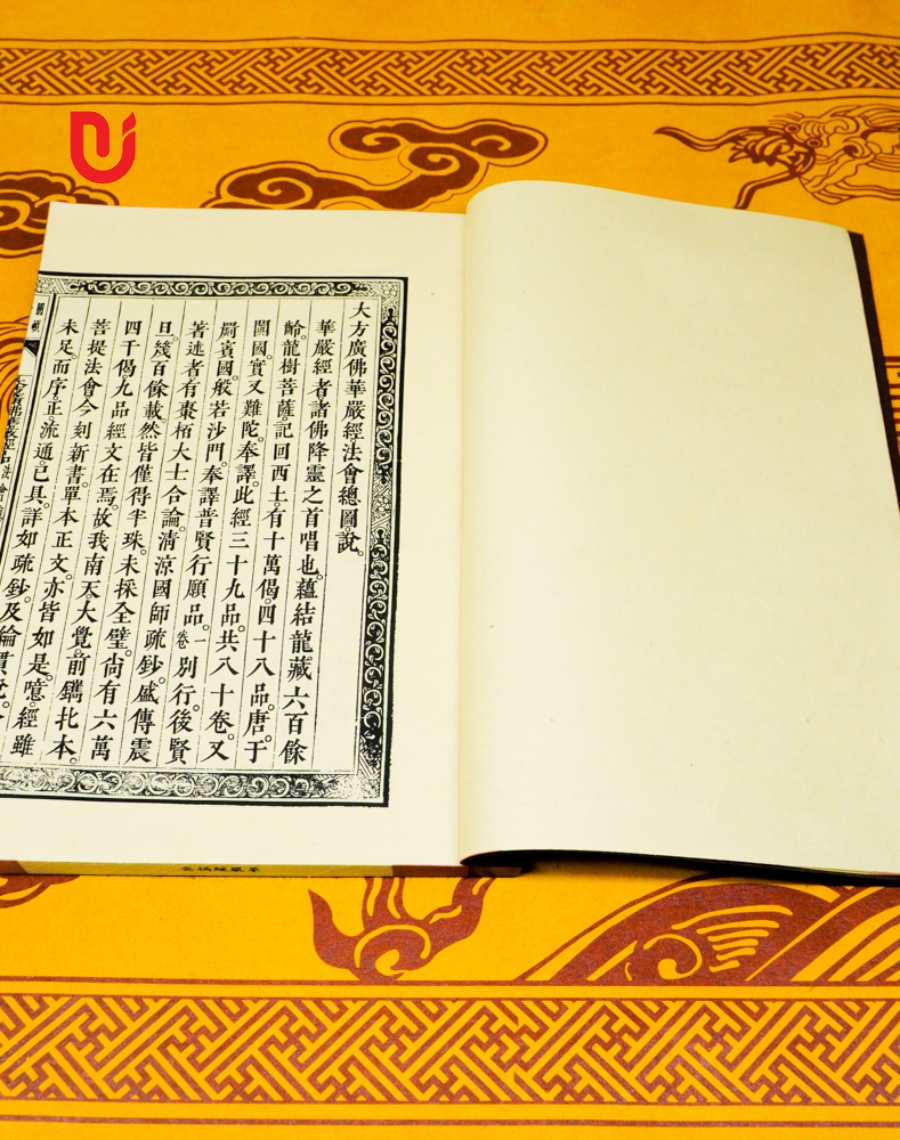 大方廣佛華嚴經法會總圖說。
華嚴經者諸佛降靈之首唱也。蘊結龍藏六百餘
齡。龍樹菩薩。記回西土。有十萬偈。四十八品。唐。于
闐國。實又難陀。奉譯。此經三十九品。共八十卷。又
罽賓國。般若沙門。奉譯普賢行願品。一卷別行。後賢
著述者有棗栢大士合論。清涼國師疏鈔。盛傳震
旦。幾百餘載。然皆僅得半珠。未採全璧。尙有六萬
四千偈九品經文在焉。故我南天。大覺。前鐫北本。
菩提法會今刻新書。單本正文。亦皆如是。噫。經雖
未足。而序。正。流通。已具。詳如疏鈔。及綸貫